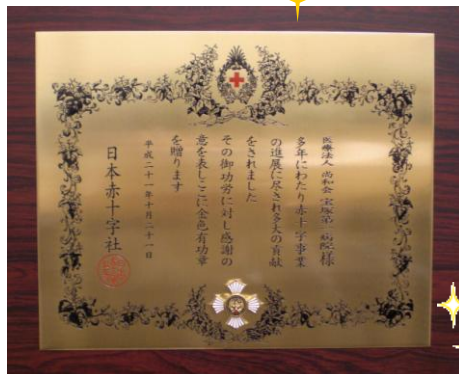 医療法人 尚和会 宝塚第一病院様
多年にわたり赤十字事業
の進展に尽され多大の貢献
をされました
その御功労に対し感謝の
意を表しここに金色有功章
を贈ります
平成二十一年十月二十一日
日本赤十字社